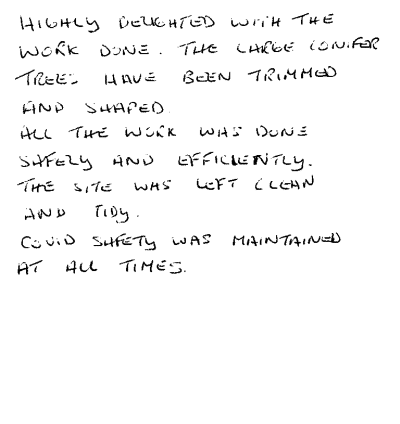 HIGHLY DELIGHTED WITH THE
WORK DONE. THE LARGE CONIFER
TREES HAVE BEEN TRIMMED
AND SHAPED.
ALL THE WORK WAS DONE
SAFELY AND EFFICIENTLY.
THE SITE WAS LEFT CLEAN
AND TIDY.
COVID SAFETY WAS MAINTAINED
AT ALL TIMES.